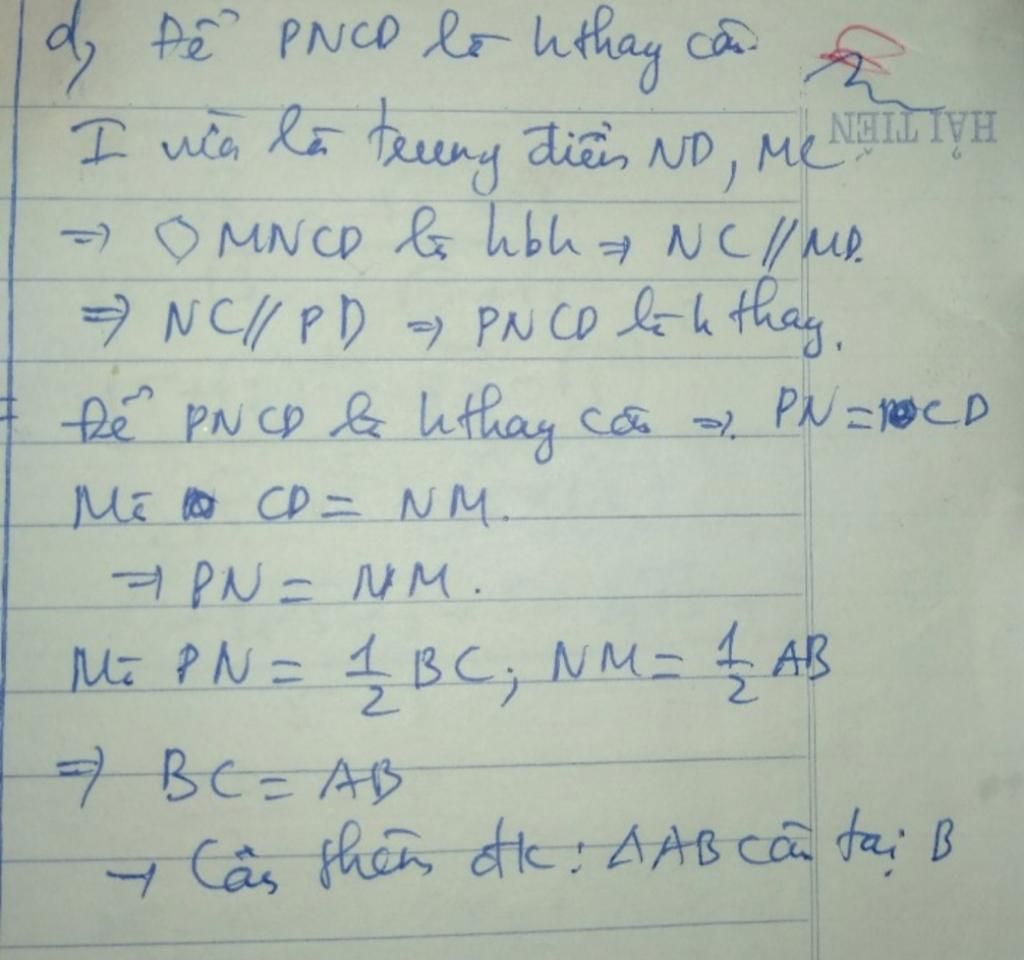 d, Để PNCD là hthay cân
HẢI TIẾN
I vừa là trung điểm ND, MC
=> ◇ MNCD là hbh => NC // MD.
=> NC // PD => PNCD là h thay.
Để PNCD là hthay cân => PN = CD
Mà CD = NM.
=> PN = NM.
Mà PN = 1/2 BC; NM = 1/2 AB
=> BC = AB
→ Cần thêm đk: ΔAB cân tại B